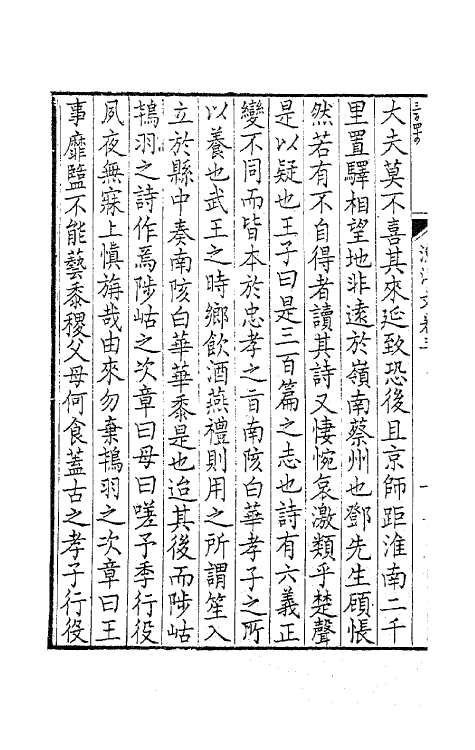 大夫莫不喜其來延致恐後且京師距淮南二千
里置驛相望地非遠於嶺南蔡州也鄧先生顧悵
然若有不自得者讀其詩又悽惋哀激類乎楚聲
是以疑也王子曰是三百篇之志也詩有六義正
變不同而皆本於忠孝之旨南陔白華孝子之所
以養也武王之時鄉飲酒燕禮則用之所謂笙入
立於縣中奏南陔白華華黍是也迨其後而陟岵
鴇羽之詩作焉陟岵之次章曰母曰嗟予季行役
夙夜無寐上慎旃哉由來勿棄鴇羽之次章曰王
事靡盬不能藝黍稷父母何食蓋古之孝子行役